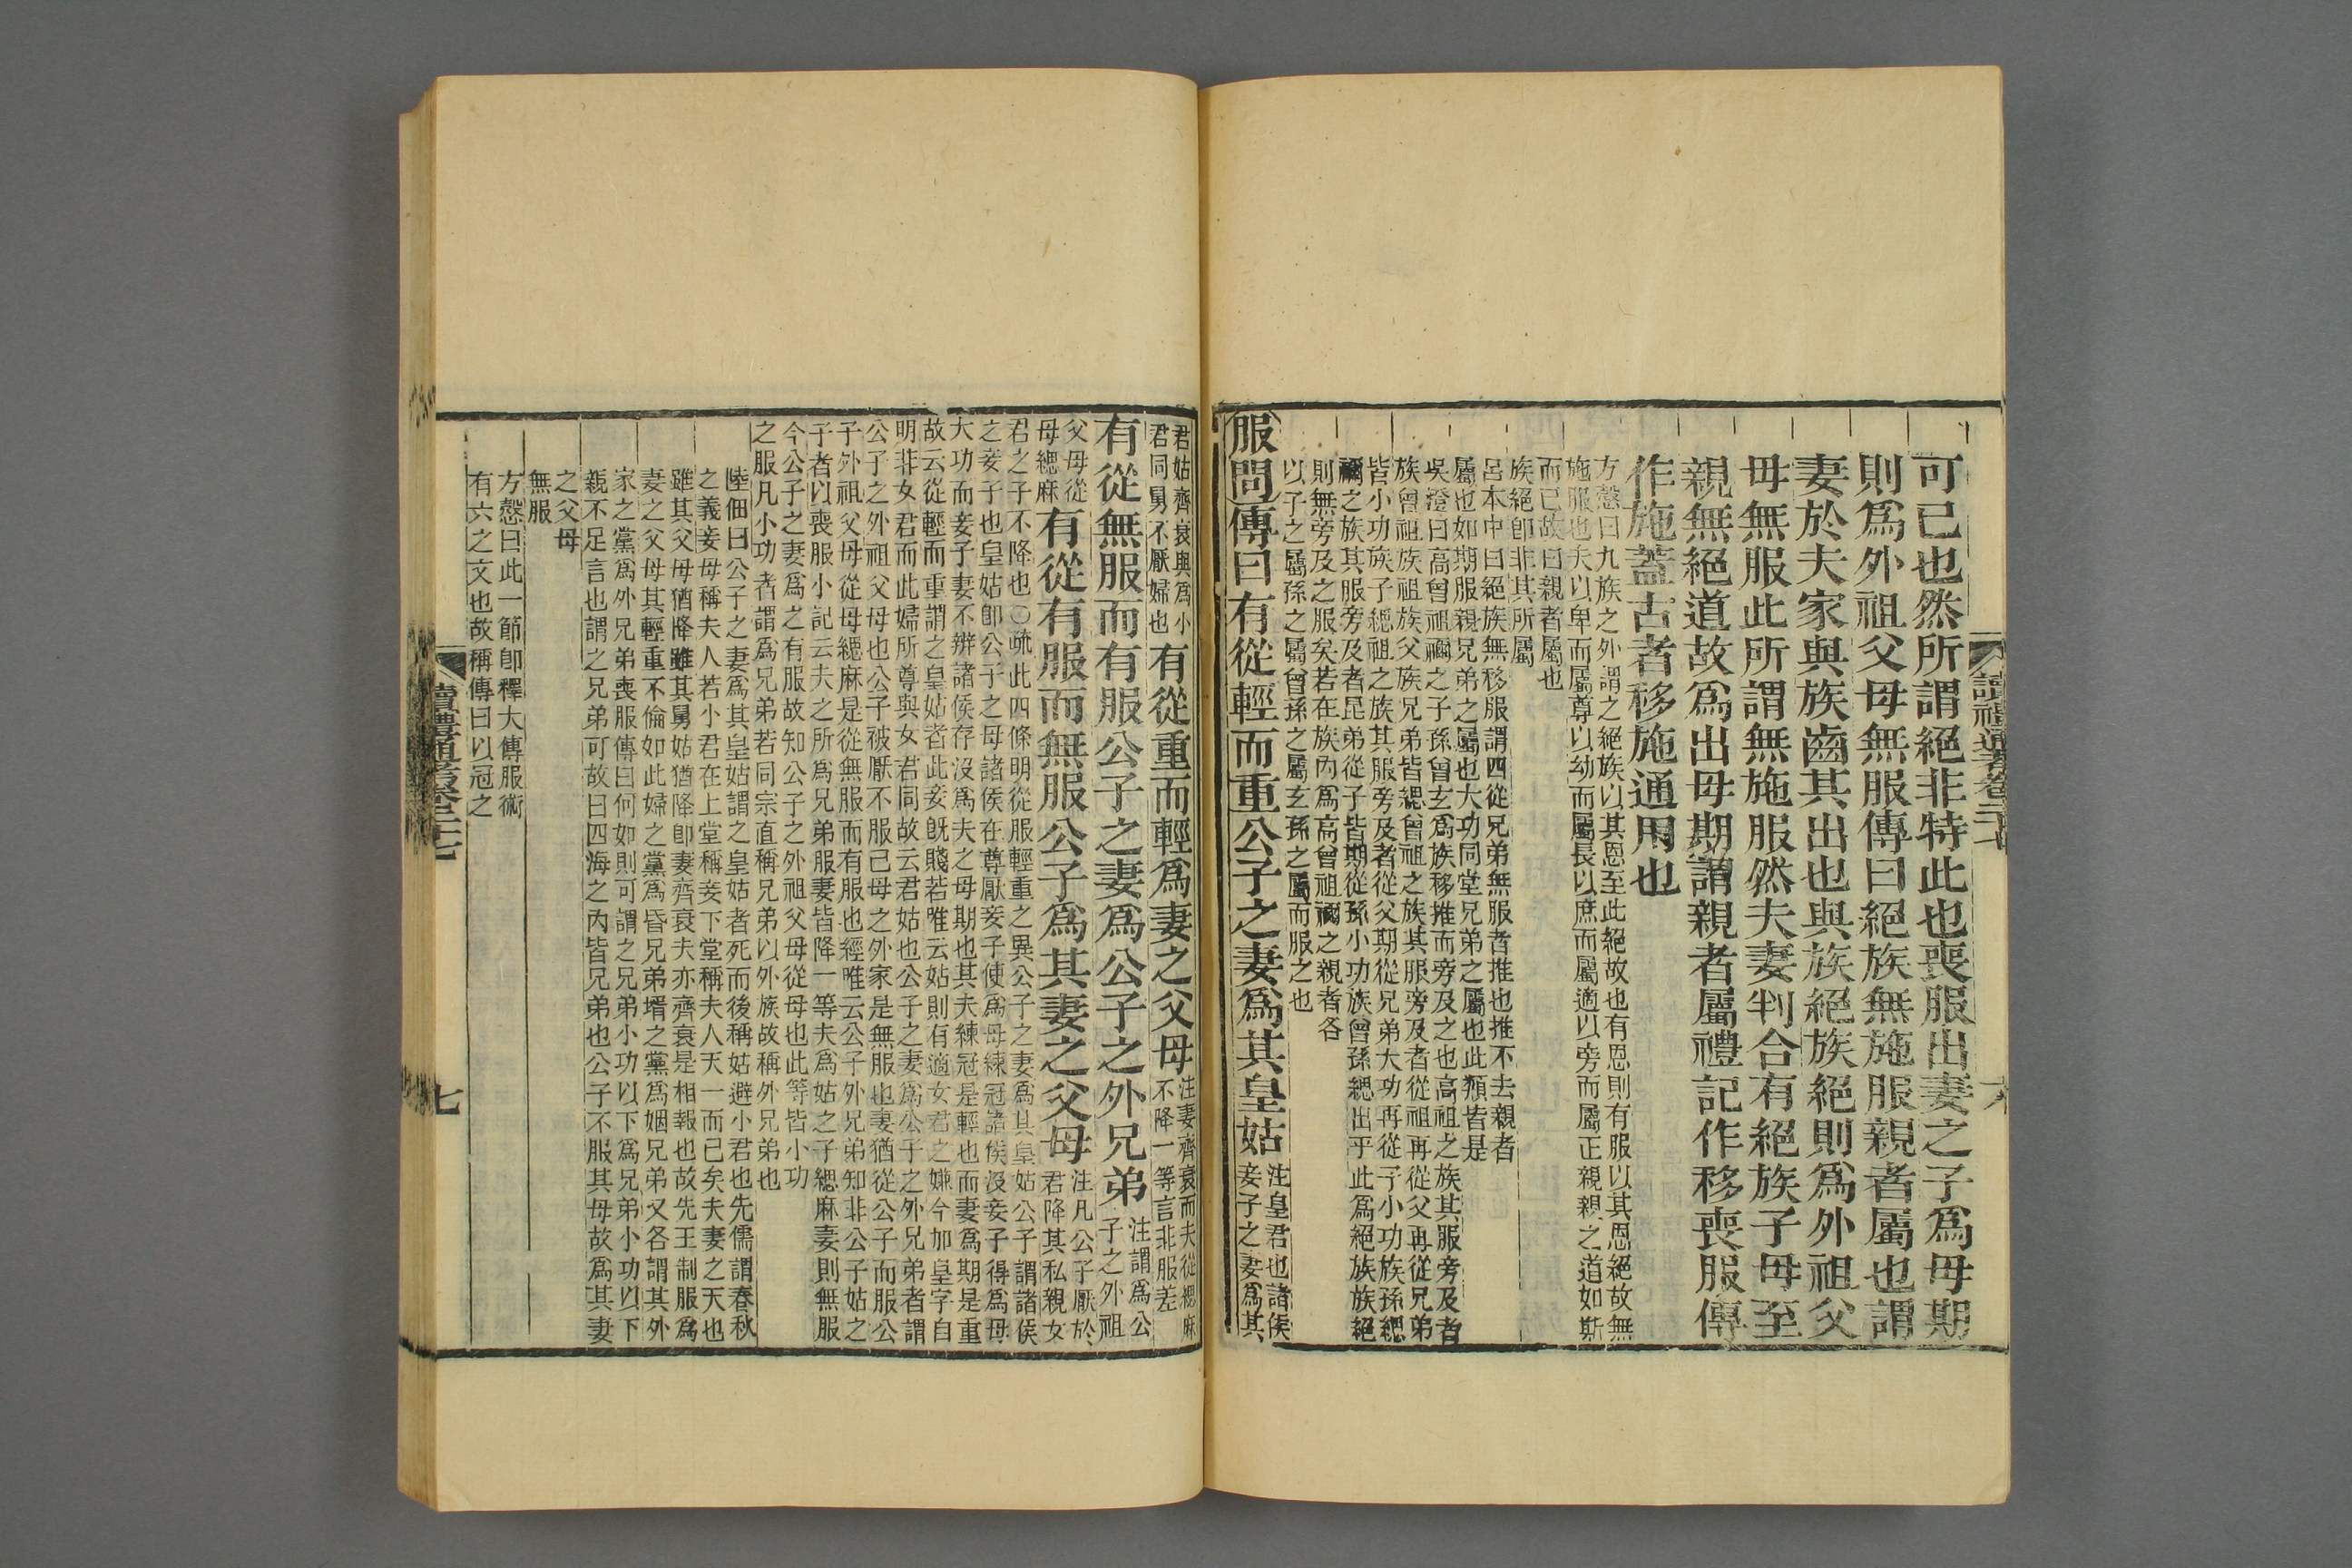 讀禮通考卷二十七
六
可已也然所謂絕非特此也喪服出妻之子爲母期
則爲外祖父母無服傳曰絕族無施服親者屬也謂
妻於夫家與族齒其出也與族絕族絕則爲外祖父
母無服此所謂無施服然夫妻判合有絕族子母至
親無絕道故爲出母期謂親者屬禮記作移喪服傳
作施蓋古者移施通用也
方慤曰九族之外謂之絕族以其恩至此絕故也有恩則有服以其恩絕故無
施服也夫以卑而屬尊以幼而屬長以庶而屬適以旁而屬正親親之道如斯
而已故曰親者屬也
族絕卽非其所屬
呂本中曰絕族無移服謂四從兄弟無服者推也推不去親者
屬也如期服親兄弟之屬也大功同堂兄弟之屬也此類皆是
吳澄曰高曾祖禰之子孫曾玄爲族移推而旁及之也高祖之族其服旁及者
族曾祖族祖族父族兄弟皆緦曾祖之族其服旁及者從祖再從父再從兄弟
皆小功族子緦祖之族其服旁及者從父期從兄弟大功再從子小功族孫緦
禰之族其服旁及者昆弟從子皆期從孫小功族曾孫緦出乎此爲絕族族絕
則無旁及之服矣若在族內爲高曾祖禰之親者各
以子之屬孫之屬曾孫之屬玄孫之屬而服之也
服問傳曰有從輕而重公子之妻爲其皇姑
注皇君也諸侯
妾子之妻爲其
君姑齊衰與爲小
君同舅不厭婦也
有從重而輕爲妻之父母
注妻齊衰而夫從緦麻
不降一等言非服差
有從無服而有服公子之妻爲公子之外兄弟
注謂爲公
子之外祖
父母從
母緦麻
有從有服而無服公子爲其妻之父母
注凡公子厭於
君降其私親女
君之子不降也○疏此四條明從服輕重之異公子之妻爲其皇姑公子謂諸侯
之妾子也皇姑卽公子之母諸侯在尊厭妾子使爲母練冠諸侯沒妾子得爲母
大功而妾子妻不辨諸侯存沒爲夫之母期也其夫練冠是輕也而妻爲期是重
故云從輕而重謂之皇姑者此妾旣賤若唯云姑則有適女君之嫌今加皇字自
明非女君而此婦所尊與女君同故云君姑也公子之妻爲公子之外兄弟者謂
公子之外祖父母也公子被厭不服己母之外家是無服也妻猶從公子而服公
子外祖父母從母緦麻是從無服而有服也經唯云公子外兄弟知非公子姑之
子者以喪服小記云夫之所爲兄弟服妻皆降一等夫爲姑之子緦麻妻則無服
今公子之妻爲之有服故知公子之外祖父母從母也此等皆小功
之服凡小功者謂爲兄弟若同宗直稱兄弟以外族故稱外兄弟也
陸佃曰公子之妻爲其皇姑謂之皇姑者死而後稱姑避小君也先儒謂春秋
之義妾母稱夫人若小君在上堂稱妾下堂稱夫人天一而已矣夫妻之天也
雖其父母猶降雖其舅姑猶降卽妻齊衰夫亦齊衰是相報也故先王制服爲
妻之父母其輕重不倫如此婦之黨爲昏兄弟壻之黨爲姻兄弟又各謂其外
家之黨爲外兄弟喪服傳曰何如則可謂之兄弟小功以下爲兄弟小功以下
親不足言也謂之兄弟可故曰四海之內皆兄弟也公子不服其母故爲其妻
之父母
無服
方慤曰此一節卽釋大傳服術
有六之文也故稱傳曰以冠之
讀禮通考卷二十七
七